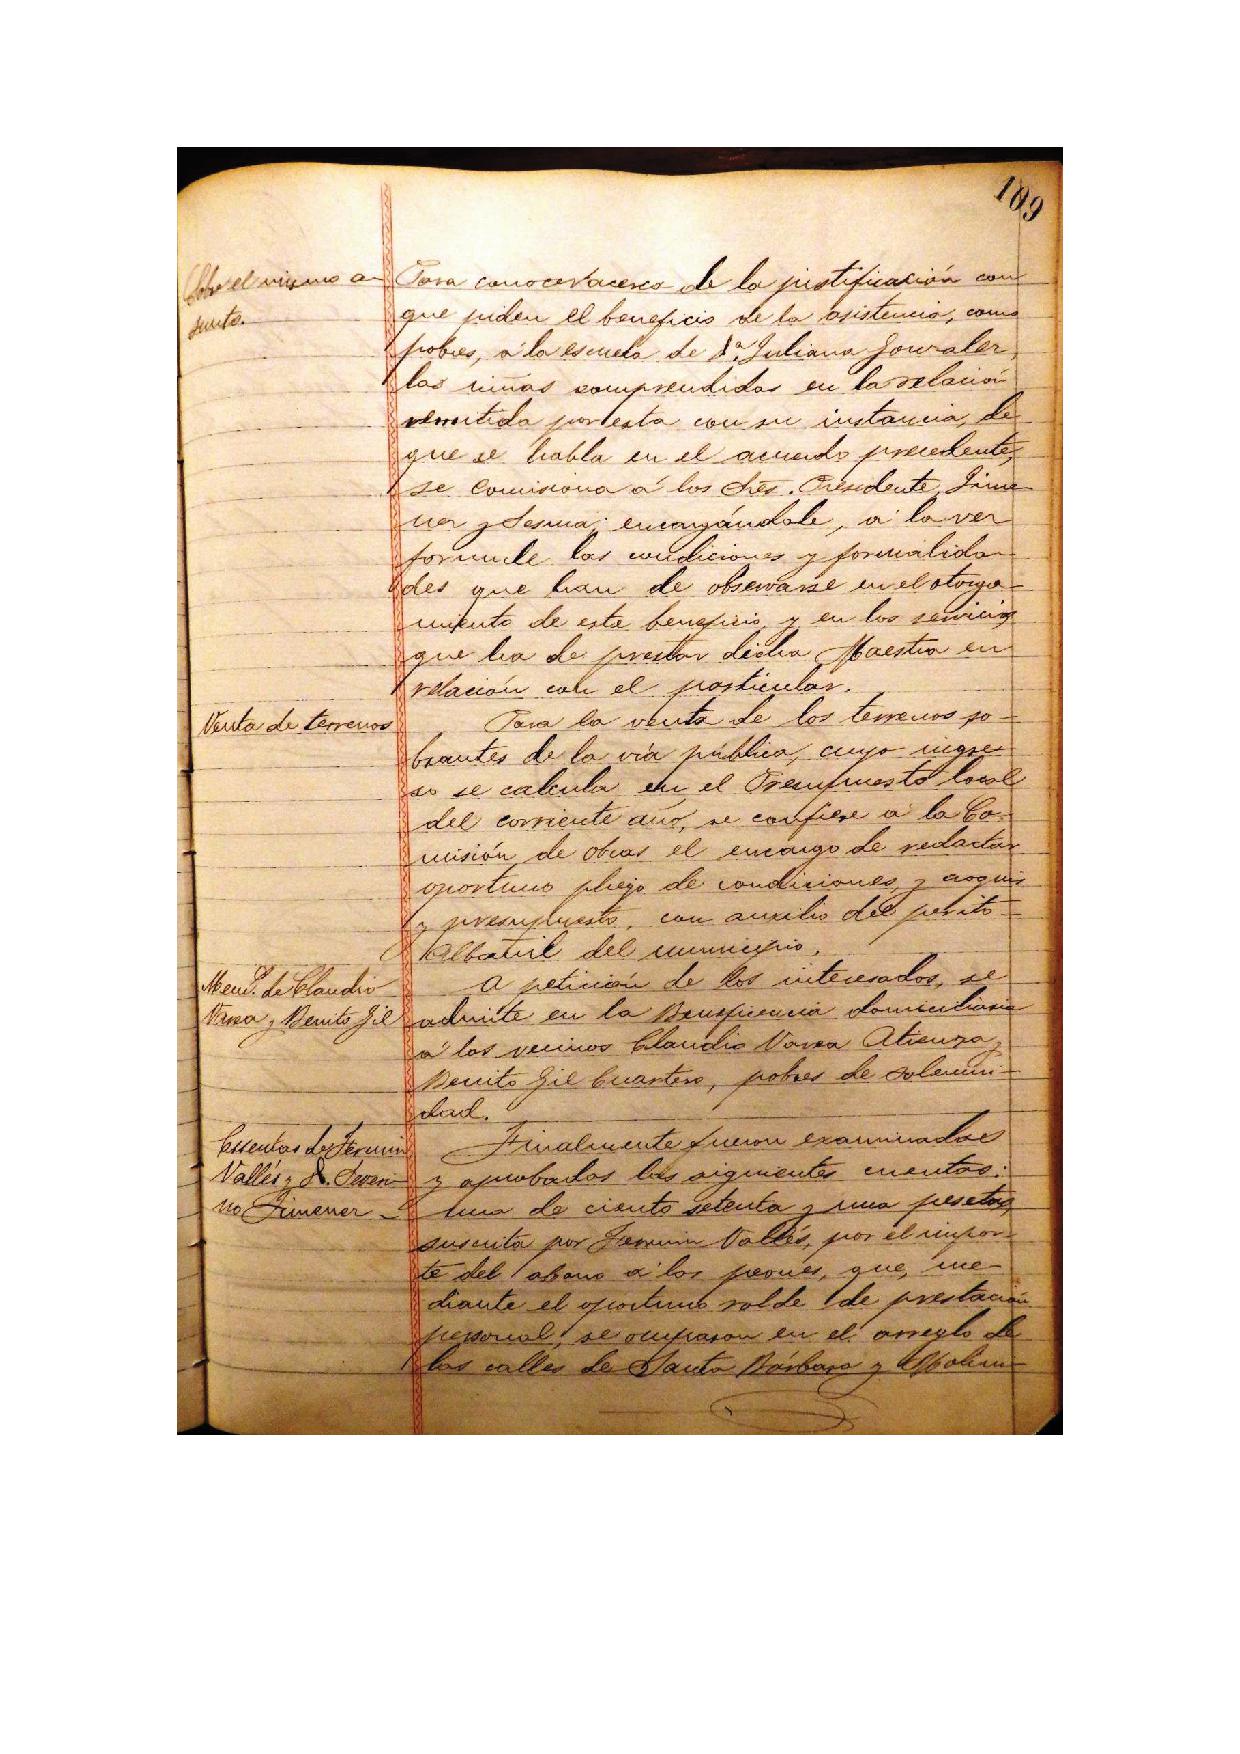 109
Sobre el mismo a-
sunto.
Para conocer acerca de la justificación con
que piden el beneficio de la asistencia, como
pobres, a la escuela de D.ª Juliana Gonzalez,
las niñas comprendidas en la relación
remitida por esta con su instancia, de
que se habla en el acuerdo precedente,
se comisiona á los Sres. Presidente, Jime-
nez y Sesma; encargándole, a la vez
formule las condiciones y formalida-
des que han de observarse en el otorga-
miento de este beneficio, y en los servicios
que ha de prestar dicha Maestra en
relación con el particular.
Venta de terrenos
Para la venta de los terrenos so-
brantes de la vía pública, cuyo ingre-
so se calcula en el Presupuesto local
del corriente año, se confiere a la Co-
misión de Obras el encargo de redactar
oportuno pliego de condiciones, y croquis
y presupuesto, con auxilio del perito
Albañil del municipio.
de Claudio
Varea y Benito Gil
A petición de los interesados, se
admite en la Beneficencia domiciliaria
á los vecinos Claudio Varea Atienza y
Benito Gil Cuartero, pobres de solemni-
dad.
Cuentas de Fermin
Vallés y D. Severi-
no Jimenez
Finalmente fueron examinadas
y aprobadas las siguientes cuentas:
una de ciento setenta y una pesetas,
suscrita por Fermin Vallés, por el impor-
te del abono a los peones, que, me-
diante el oportuno rolde de prestación
personal, se ocuparon en el arreglo de
las calles de Santa Bárbara y Molin-